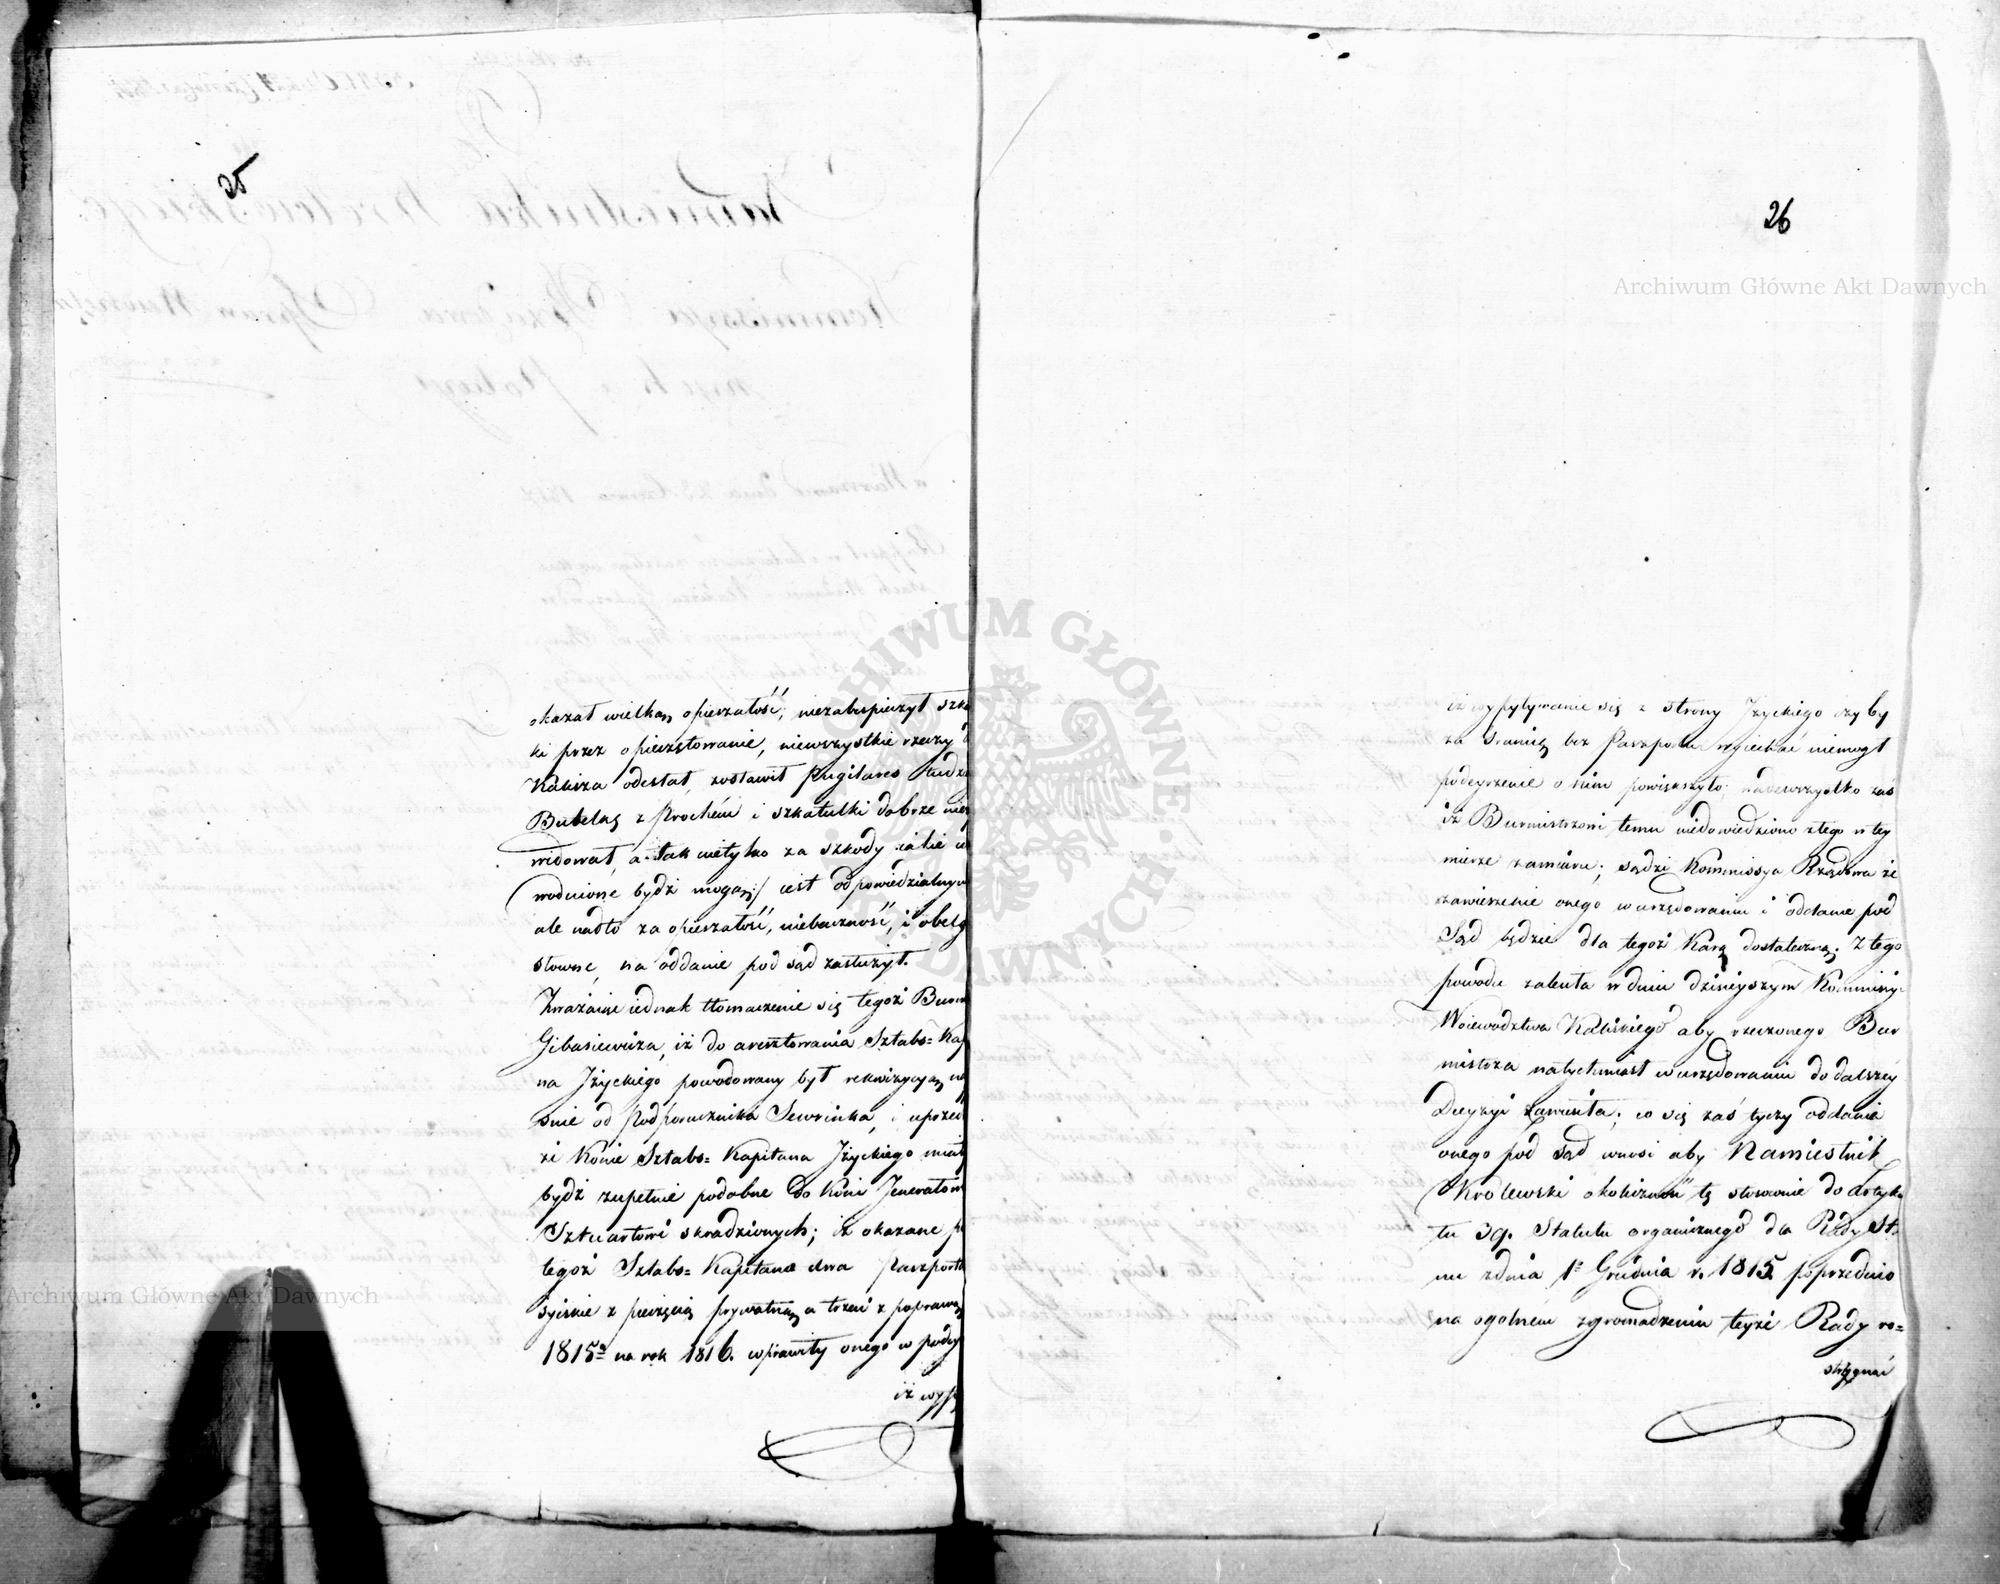 25
okazał wielką opieszałość, niezabespieczył szka
ki przez opieczętowanie, niewszystkie rzeczy
Kalisza odesłał, zostawił Pugilares tudzi
Butelkę z Prochem i szkatułki dobrze nie
widował, a tak nietylko za szkody iakie
wodnione bydź mogą/ iest odpowiedzialny
ale nadto za opieszałość, niebaczność, i obelg
słowne, na oddanie pod sąd zasłużył.
Zważaiąc iednak tłomaczenie się tegoż Burm
Gibasiewicza, iż do aresztowania Sztabs=Kap
na Jżyckiego powodowany był rekwizycyą
śnie od Podporucznika Sewrinka, i uprzed
że Konie Sztabs=Kapitana Jżyckiego miał
bydź zupełnie podobne do Koni Jenerałow
Sztuartowi skradzionych; iż okazane p
tegoż Sztabs=Kapitana dwa Paszporta
syiskie z pieczęcią prywatną a trzeci z poprawą
1815º na rok 1816. wprawiły onego w podey
iż wyp
26
iż wypytywanie się z strony Jżyckiego czyby
za Granicę bez Paszportu wyiechać niemogł
podeyrzenie o nim powiększyło, nadewszystko zaś
iż Burmistrzowi temu niedowiedziono złego w tey
mierze zamiaru; sądzi Kommissya Rządowa że
zawieszenie onego w urzędowaniu i oddanie pod
Sąd będzie dla tegoż Karą dostateczną. Z tego
powodu zaleciła w dniu dzisieyszym Kommissyi
Woiewodztwa Kaliskiego aby rzeczonego Bur
mistrza natychmiast w urzędowaniu do dalszey
Decyzyi zawiesiła; co się zaś tyczy oddania
onego pod Sąd wnosi aby Namiestnik
Krolewski okoliczność tę stosownie do Artyku
łu 39. Statutu organicznego dla Rady St=
nu zdnia 1º Grudnia r. 1815. poprzednio
na ogolnem zgromadzeniu teyże Rady ro=
strzągnąć
Archiwum Główne Akt Dawnych
Archiwum Główne Akt Dawnych
ARCHIWUM GŁÓWNE AKT DAWNYCH